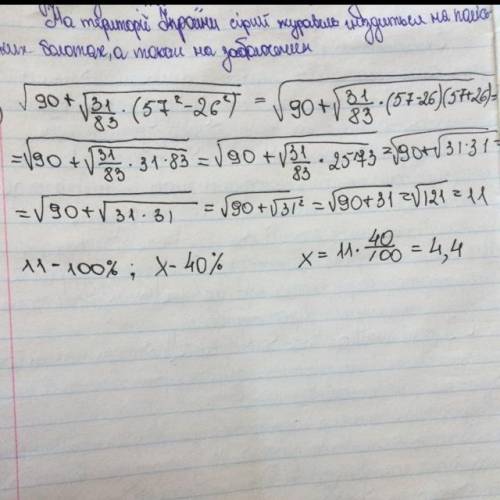 На території України сірий журавель гніздиться на поліських болотах, а також на заболочен
√90+√31/83 · (57² - 26²) = √90+√31/83 · (57-26)(57+26) =
= √90 + √31/83 · 31 · 83 = √90 + √31/83 · 2573 = √90+√31·31 =
= √90+√31·31 = √90+√31² = √90+31 = √121 = 11
11 - 100% ; x - 40% x = 11 · 40/100 = 4,4